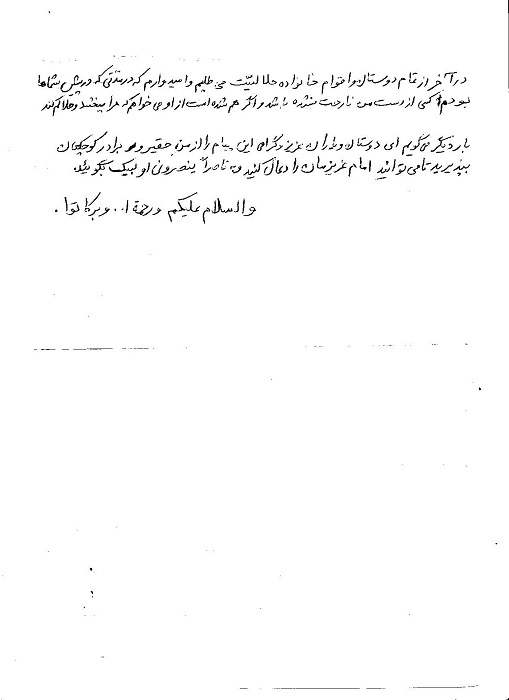 در آخر از تمام دوستان و اقوام خانواده حلالیت می طلبم و امیدوارم که در مدتی که در پیش شماها
بودم کسی از دست من ناراحت نشده باشد و اگر هم شده است از او می خواهم که مرا ببخشد و حلالم کند
بار دیگر می گویم ای دوستان و برادران عزیز و گرامی این پیام را از من حقیر و برادر کوچکتان
بپذیرید تا می توانید امام عزیزمان را دعا کنید و ناصراً ینصرونی او لبیک بگوئید.
والسلام علیکم و رحمة ا... و برکاتوا.